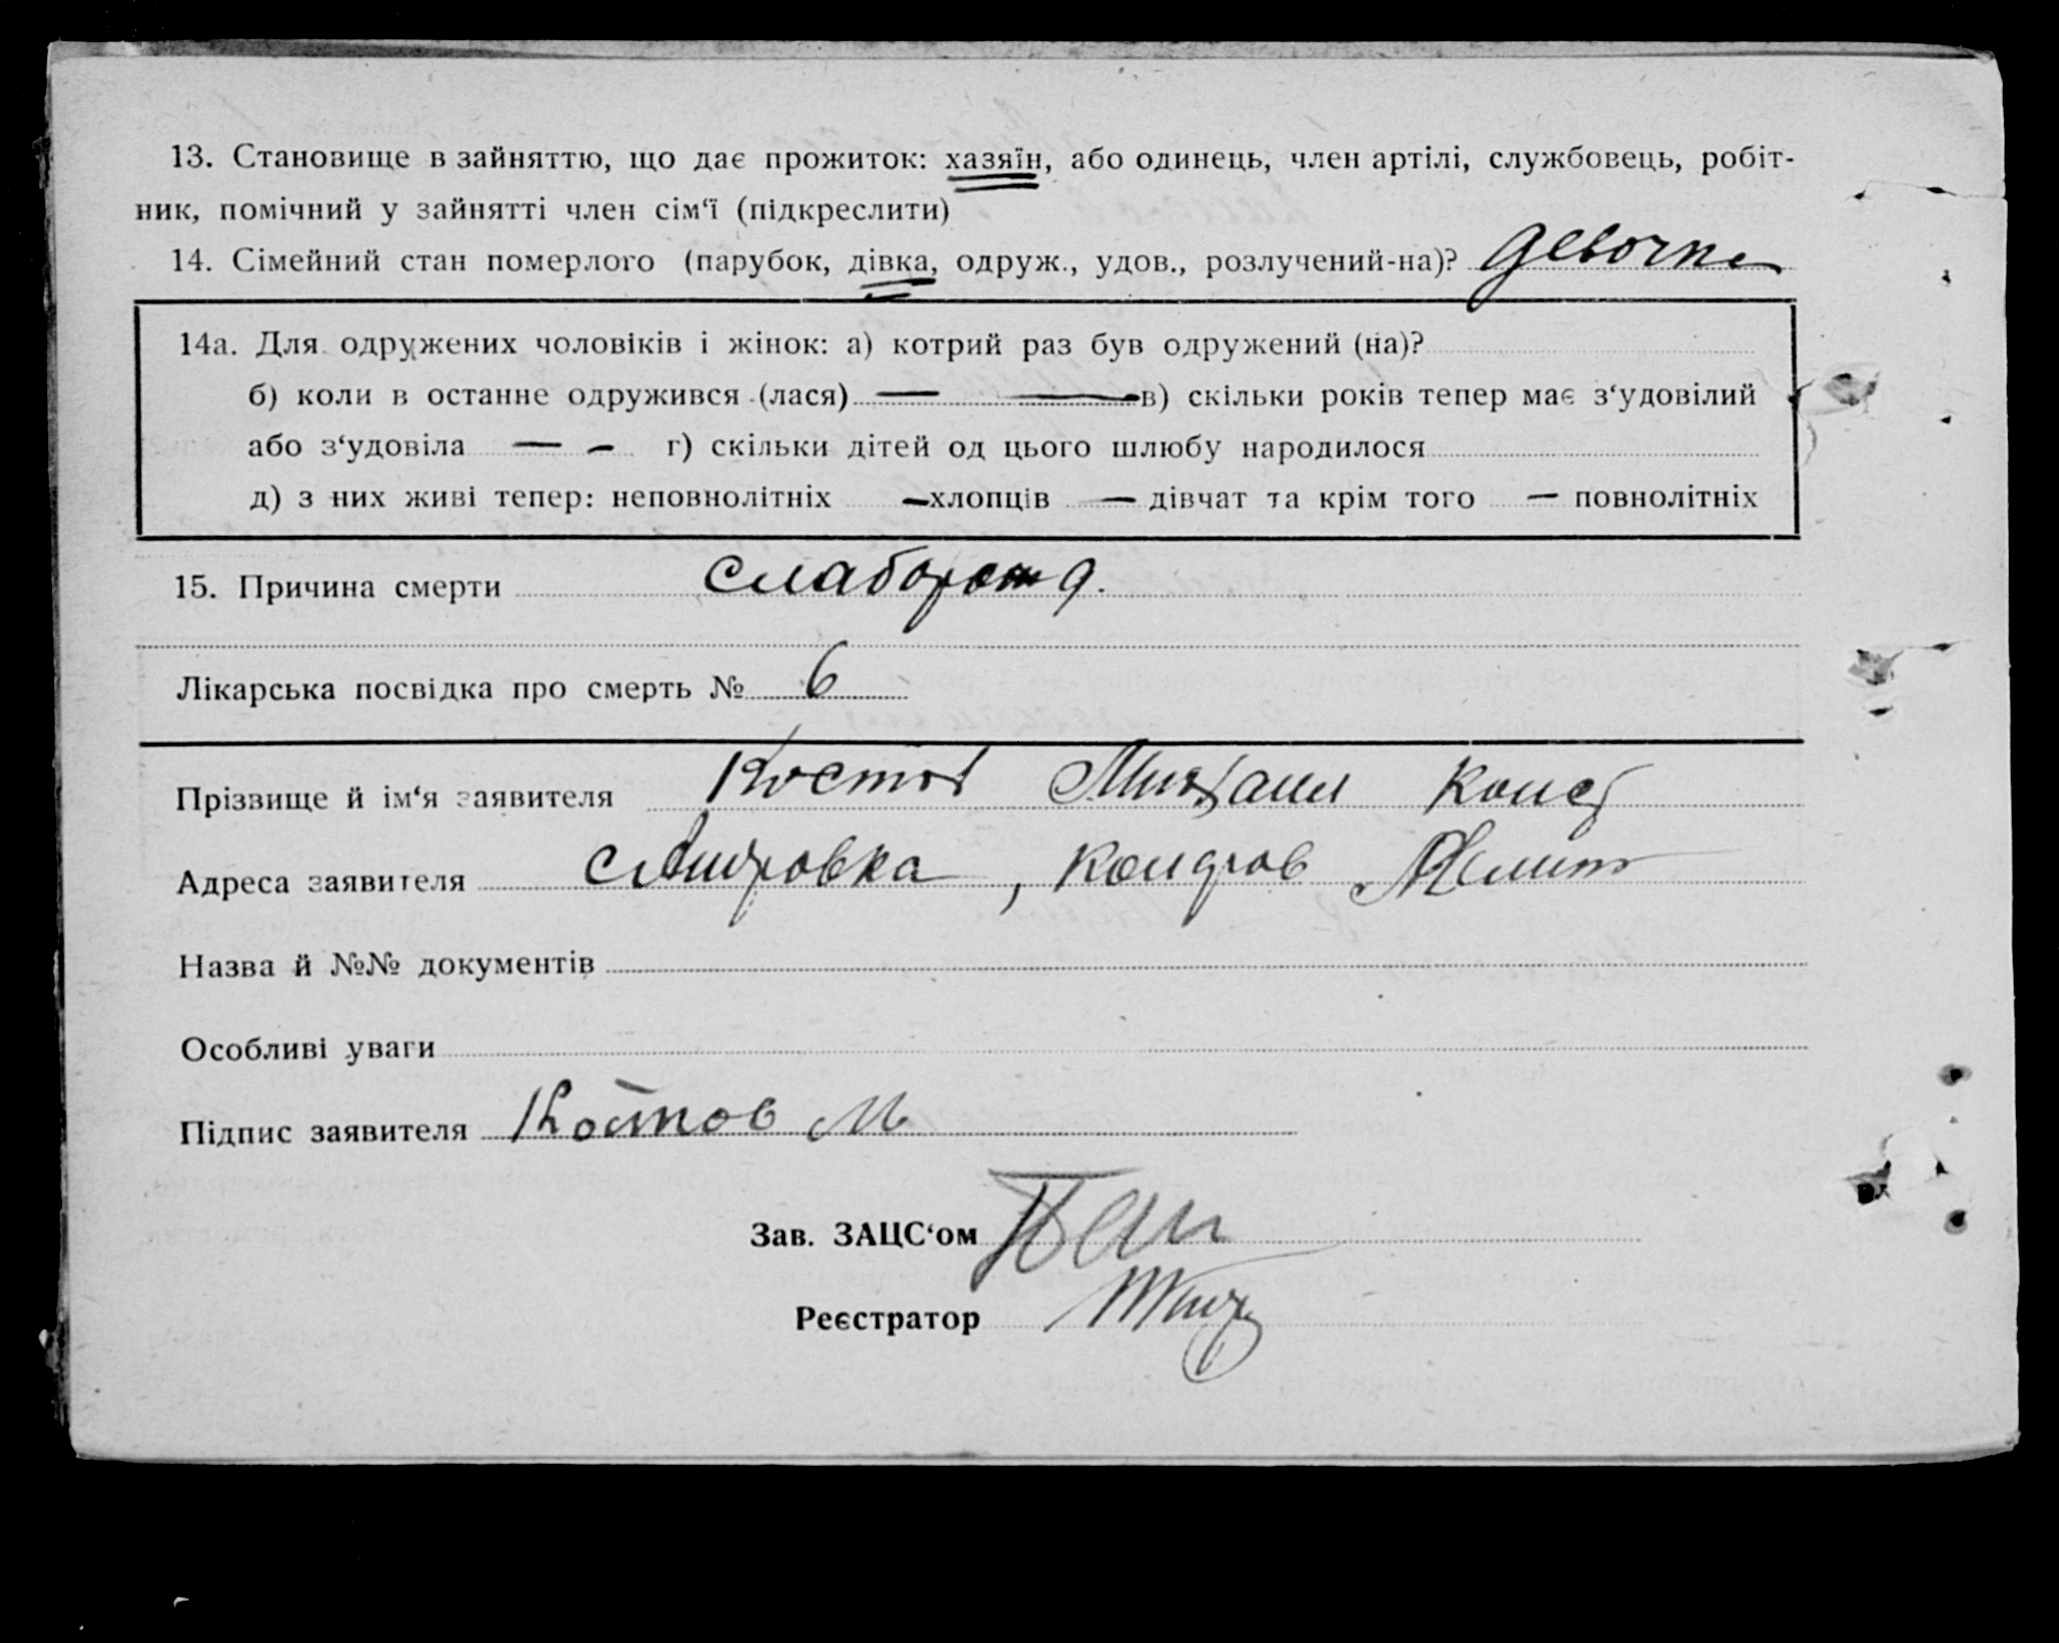 13. Становище в зайняттю, що дає прожиток: хазяїн, або одинець, член артілі, службовець, робіт-
ник, помічний у зайнятті член сім‘ї (підкреслити)
14. Сімейний стан померлого (парубок, дівка, одруж., удов., розлучений-на)? девочка
14а. Для одружених чоловіків і жінок: а) котрий раз був одружений (на)?
б) коли в останне одружився (лася) — — в) скільки років тепер має з‘удовілий
або з‘удовіла — — г) скільки дітей од цього шлюбу народилося
д) з них живі тепер: неповнолітніх — хлопців — дівчат та крім того — повнолітніх
15. Причина смерти
Лікарська посвідка про смерть № 6
Прізвище й ім‘я заявителя Костов Михаил Конст
Адреса заявителя
Назва й №№ документів
Особливі уваги
Підпис заявителя Костов М
Зав. ЗАЦС‘ом
Реєстратор